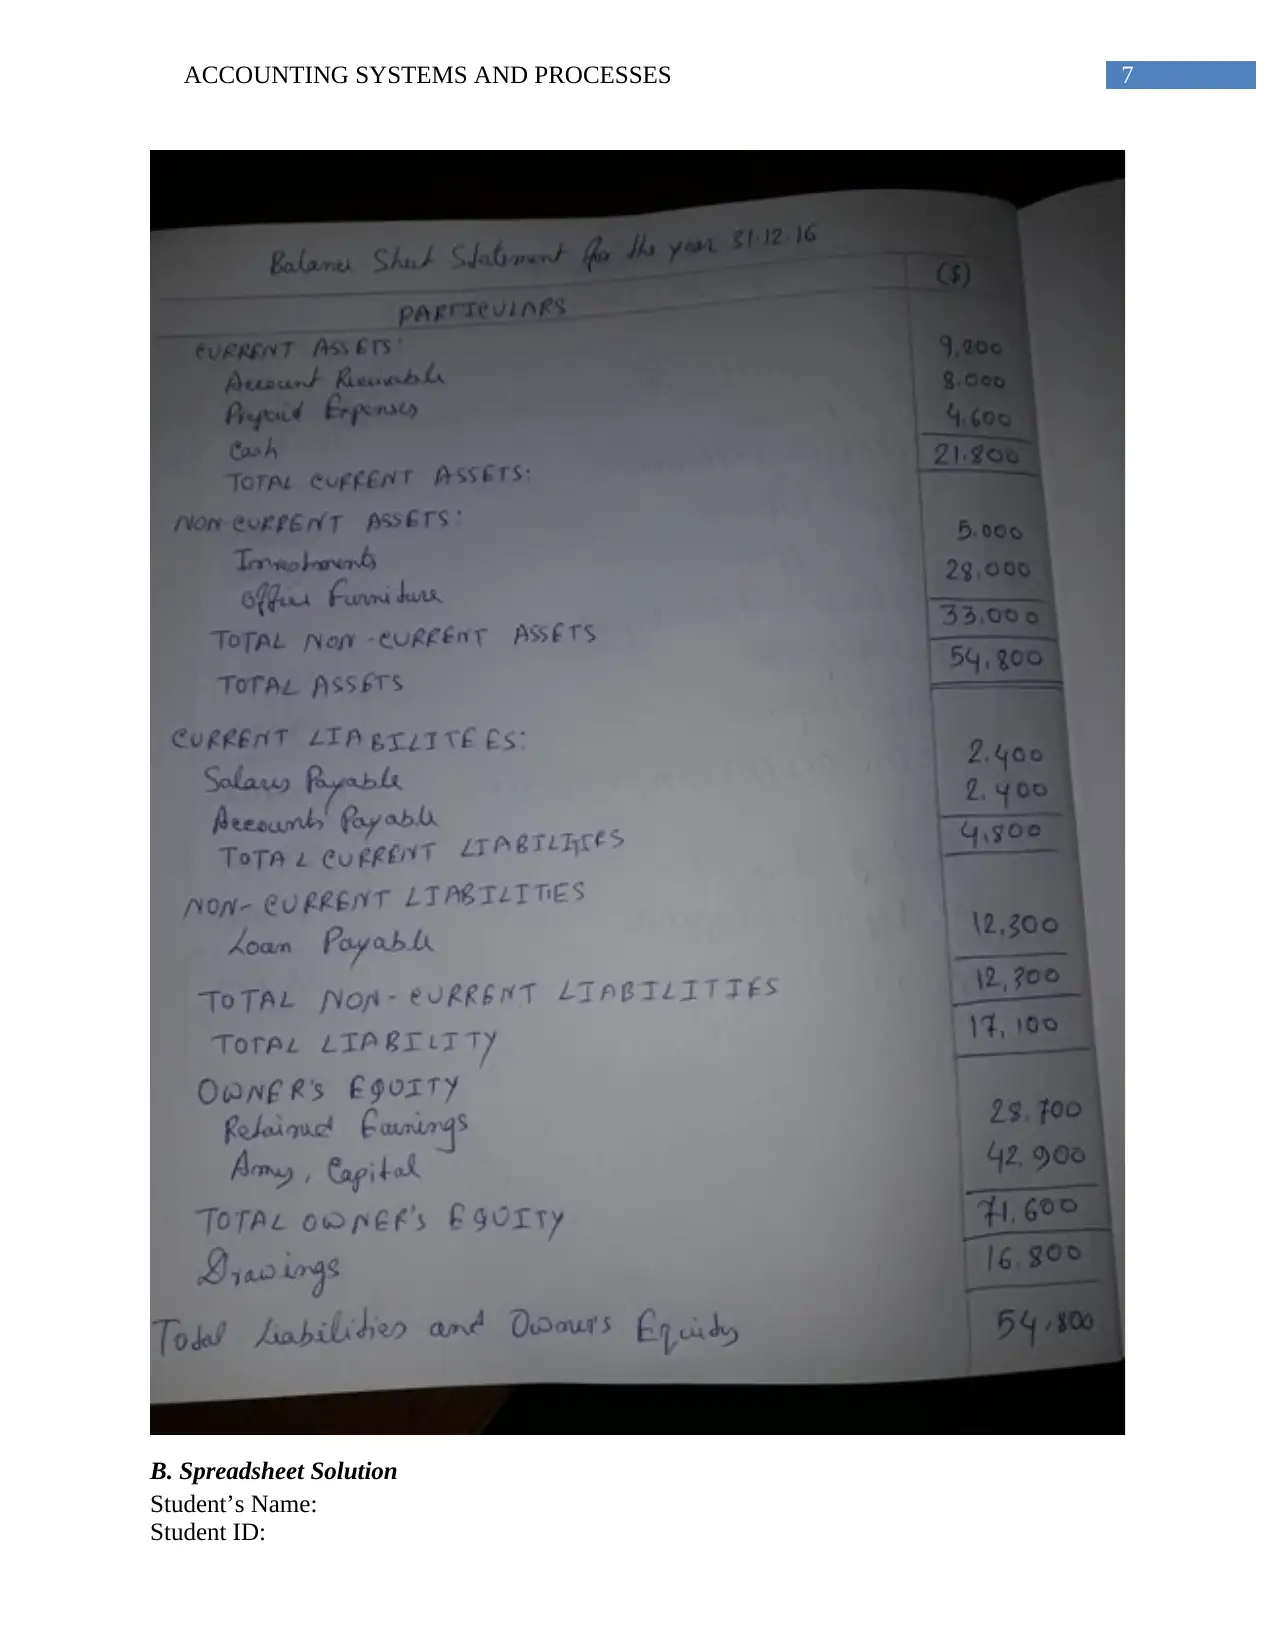 ACCOUNTING SYSTEMS AND PROCESSES 7
Balance Sheet Statement for the year 31.12.16
PARTICULARS ($)
CURRENT ASSETS:
Account Receivable 9,200
Prepaid Expenses 8.000
Cash 4,600
TOTAL CURRENT ASSETS: 21.800
NON-CURRENT ASSETS:
Investments 5.000
Office Furniture 28,000
TOTAL NON-CURRENT ASSETS 33,000
TOTAL ASSETS 54,800
CURRENT LIABILITEES:
Salaries Payable 2.400
Accounts Payable 2.400
TOTAL CURRENT LIABILITIES 4,800
NON-CURRENT LIABILITIES
Loan Payable 12,300
TOTAL NON-CURRENT LIABILITIES 12,300
TOTAL LIABILITY 17,100
OWNER'S EQUITY
Retained Earnings 28.700
Amy, Capital 42.900
TOTAL OWNER'S EQUITY 71.600
Drawings 16.800
Total Liabilities and Owner's Equity 54,800
B. Spreadsheet Solution
Student’s Name:
Student ID: